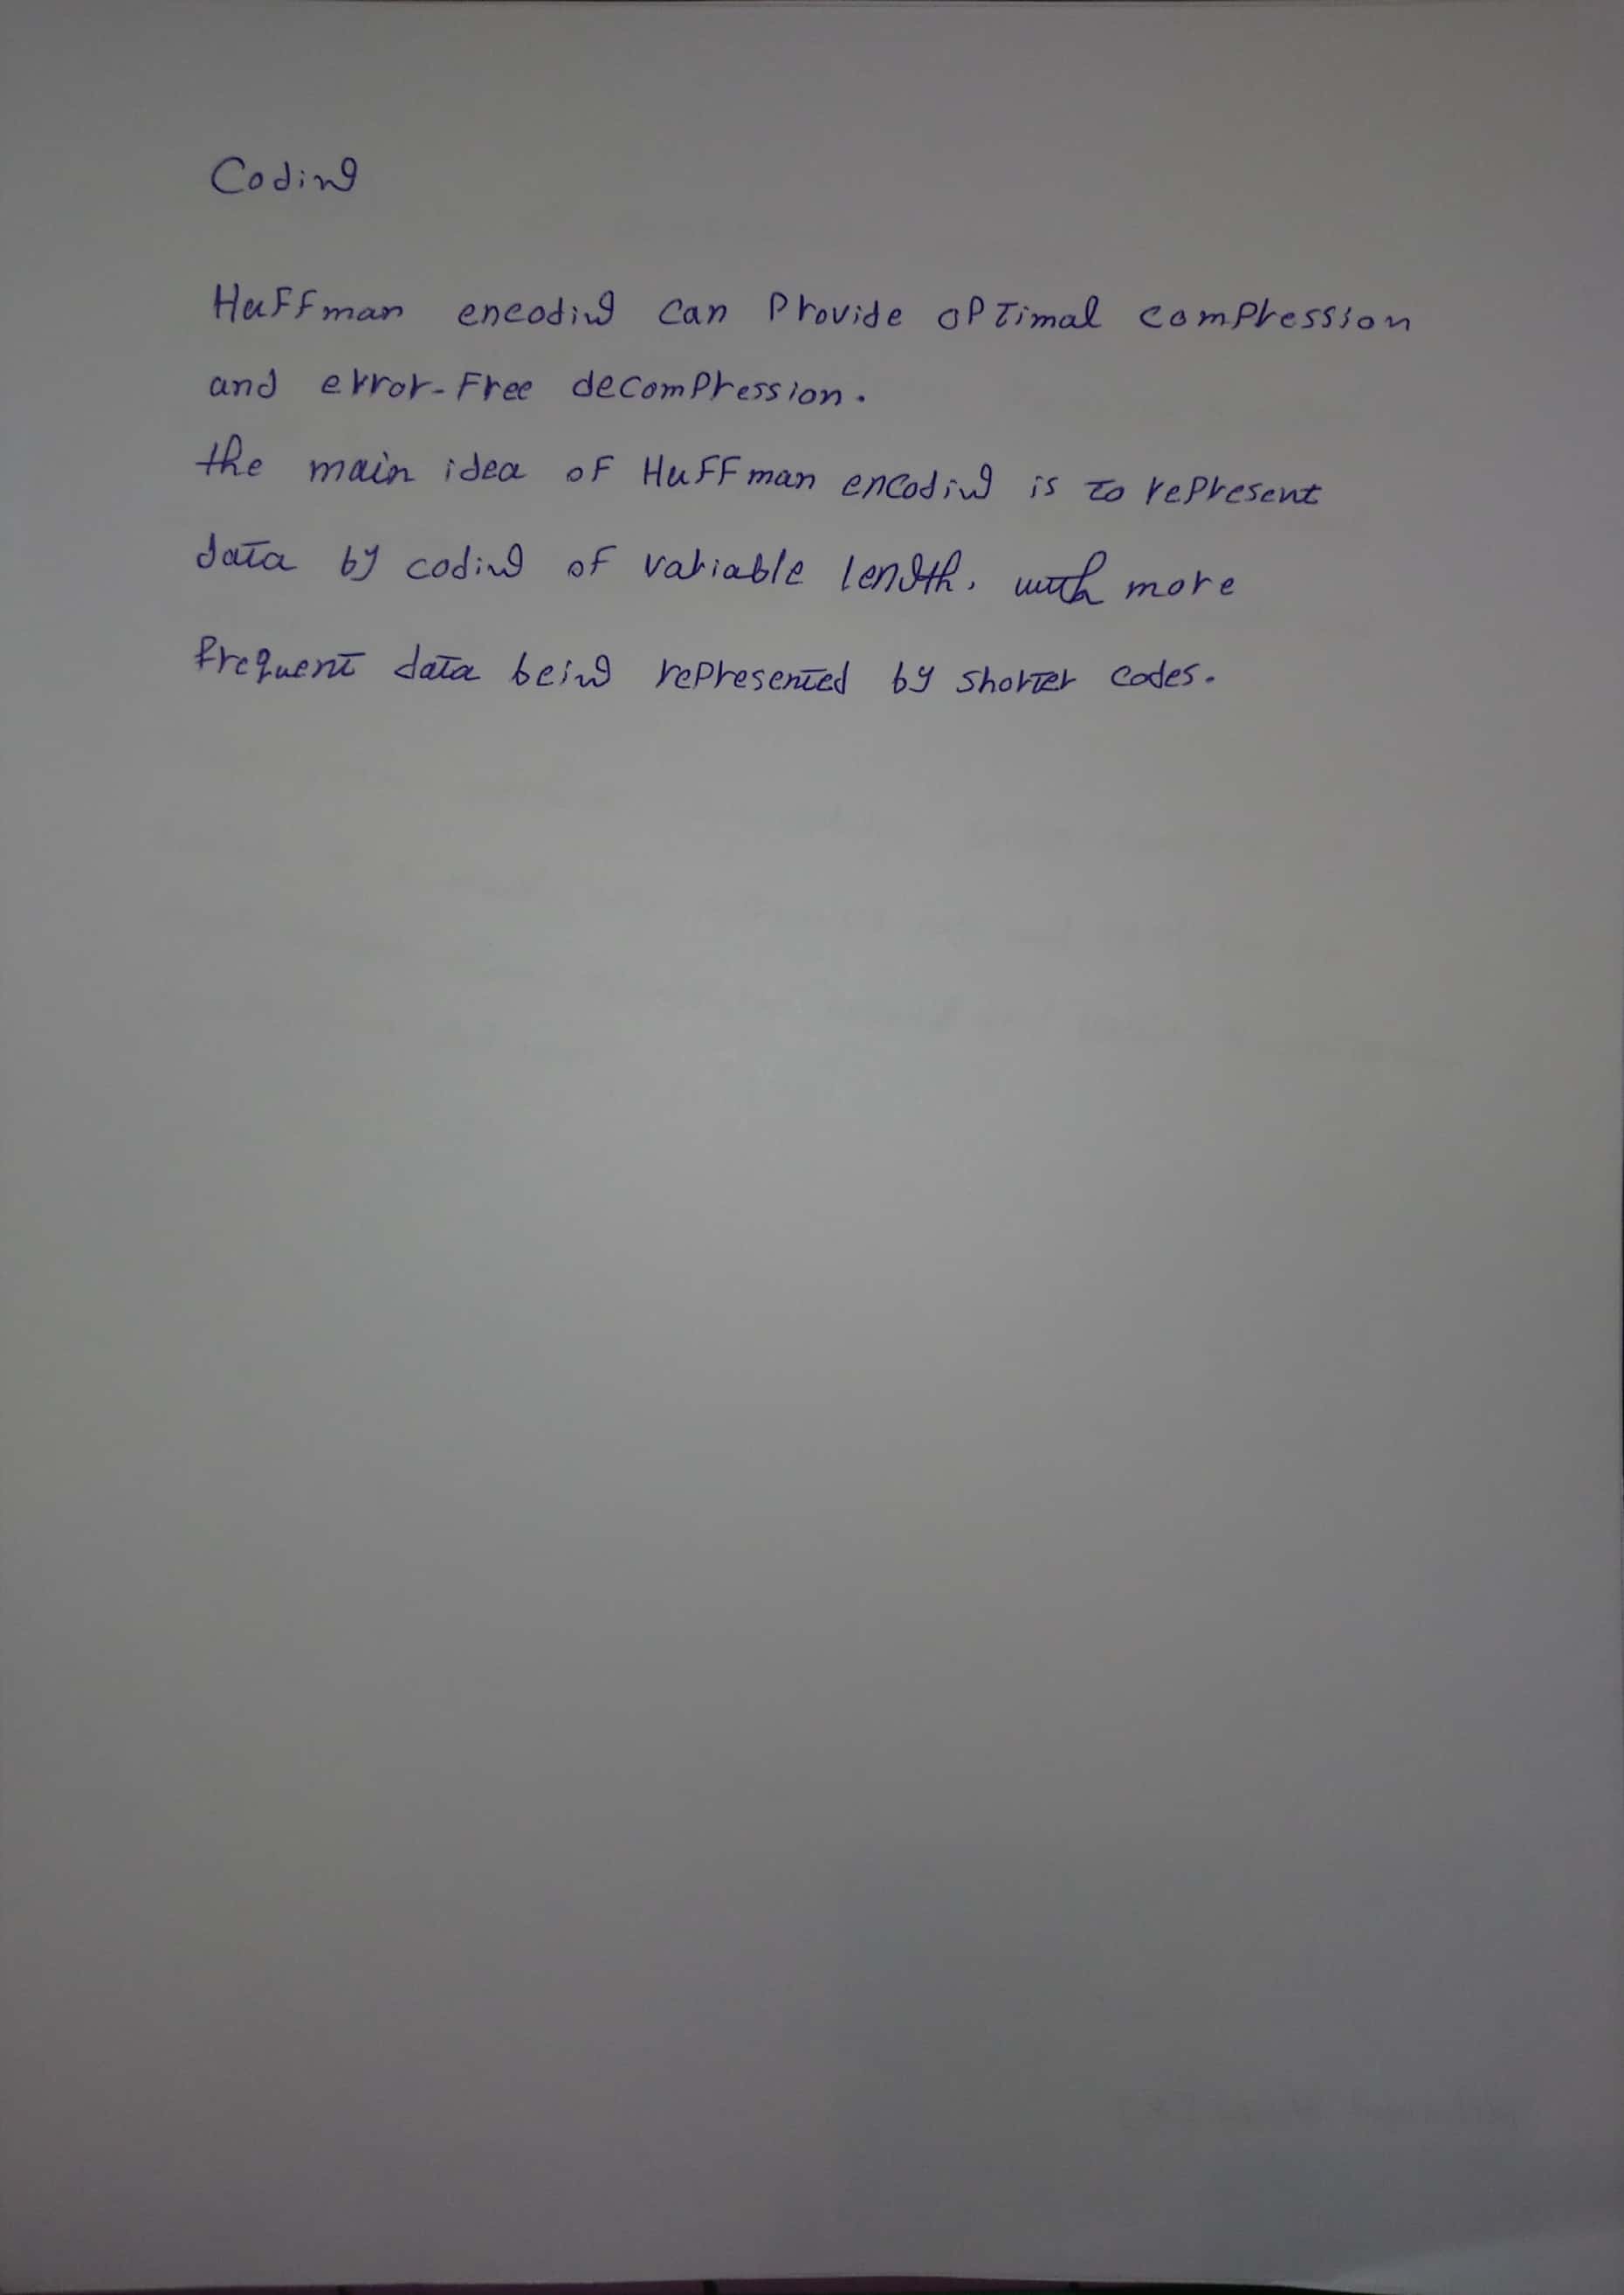 Coding
Huffman encoding can Provide oPTimal comPression
and error-Free decomPression.
the main idea oF HuFFman encoding is to rePresent
data by coding of variable length, with more
frequent data being rePresented by shorter codes.